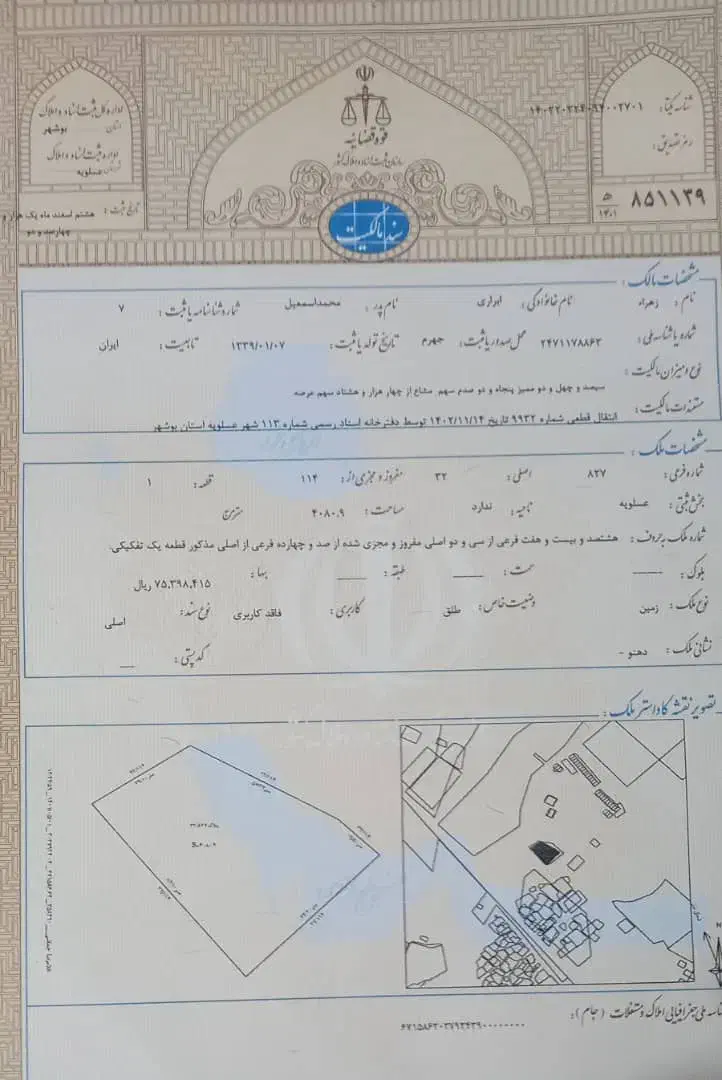 اداره کل ثبت اسناد و املاک
استان بوشهر
اداره ثبت اسناد و املاک
شهرستان عسلویه
تاریخ ثبت : هشتم اسفند ماه یک هزار و
چهارصد و دو
قوه قضائیه
سازمان ثبت اسناد و املاک کشور
سند مالکیت
شناسه یکتا :
رمز تصدیق :
۸۵۱۱۳۹ ه‍ ۱۴۰۱
مشخصات مالک :
نام : زهراء نام خانوادگی : ابراری نام پدر : محمداسمعیل شماره شناسنامه یا ثبت : ۷
شماره یا شناسه ملی : ۲۴۷۱۱۷۸۸۶۲ محل صدور یا ثبت : جهرم تاریخ تولد یا ثبت : ۱۳۳۹/۰۱/۰۷ تابعیت : ایران
نوع و میزان مالکیت :
سیصد و چهل و دو ممیز پنجاه و دو صدم سهم مشاع از چهار هزار و هشتاد سهم عرصه
مستندات مالکیت : انتقال قطعی شماره ۹۹۳۲ تاریخ ۱۴۰۲/۱۱/۱۴ توسط دفترخانه اسناد رسمی شماره ۱۱۳ شهر عسلویه استان بوشهر
مشخصات ملک :
شماره فرعی : ۸۲۷ اصلی : ۳۲ مفروز و مجزی از : ۱۱۴ قطعه : ۱
بخش ثبتی : عسلویه ناحیه : ندارد مساحت : ۴۰۸۰.۹ مترمربع
شماره ملک بحروف : هشتصد و بیست و هفت فرعی از سی و دو اصلی مفروز و مجزی شده از صد و چهارده فرعی از اصلی مذکور قطعه یک تفکیکی،
بلوک : ــــ سمت : ــــ طبقه : ــــ بها : ۷۵،۳۹۸،۴۱۵ ریال
نوع ملک : زمین وضعیت خاص : طلق کاربری : فاقد کاربری نوع سند : اصلی
نشانی ملک : دهنو - کد پستی : ــــ
تصویر نقشه کاداستر ملک :
N
شناسه ملی جغرافیایی املاک و مستغلات (جام) :